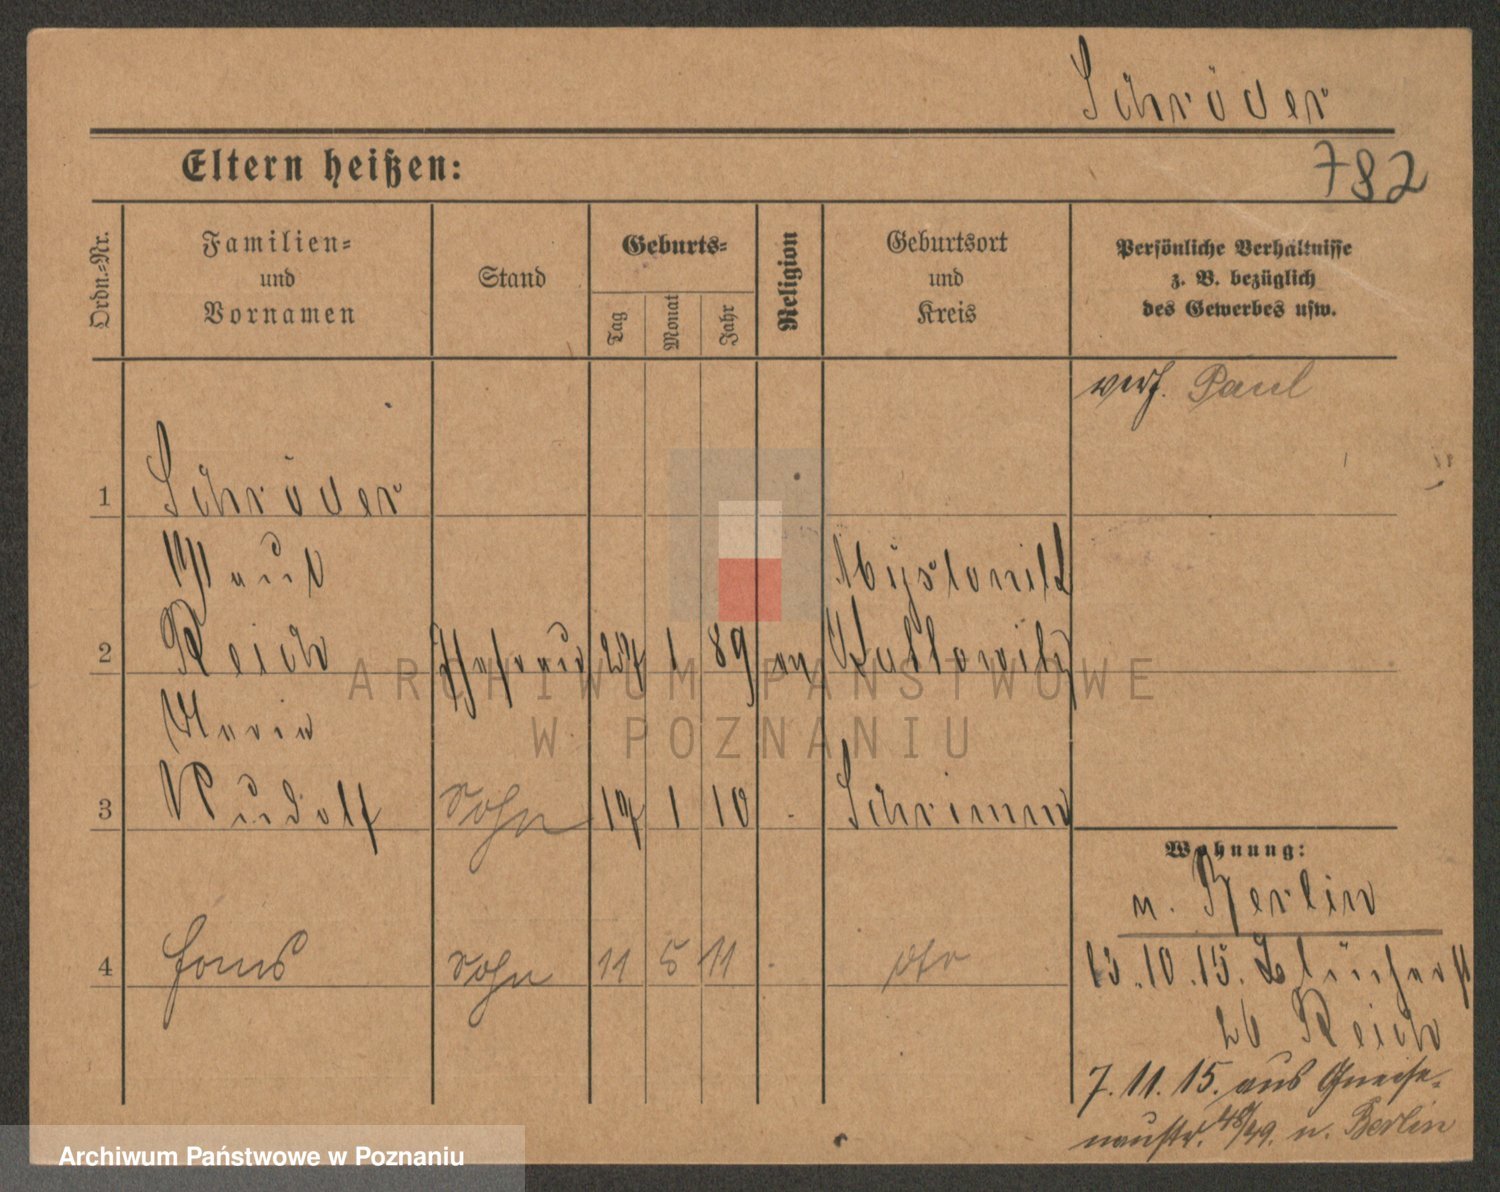 Schröder
Eltern heißen:
782
Ordn.=Nr.
Familien=
und
Vornamen
Stand
Geburts=
Tag
Monat
Jahr
Religion
Geburtsort
und
Kreis
Persönliche Verhältnisse
z. B. bezüglich
des Gewerbes usw.
verh. Paul
1
Schröder
geb.
Myslowitz
2
Reich
Ehefrau 27 1 89 ev Kattowitz
Maria
3
Rudolf Sohn 17 1 10 Schrimm
Wohnung:
n. Berlin
4
Hans Sohn 11 5 11 dto
13.10.15. Blücherst
26 Reich
7.11.15. aus Gneise-
naustr. 48/49. n. Berlin
ARCHIWUM PAŃSTWOWE
W POZNANIU
Archiwum Państwowe w Poznaniu